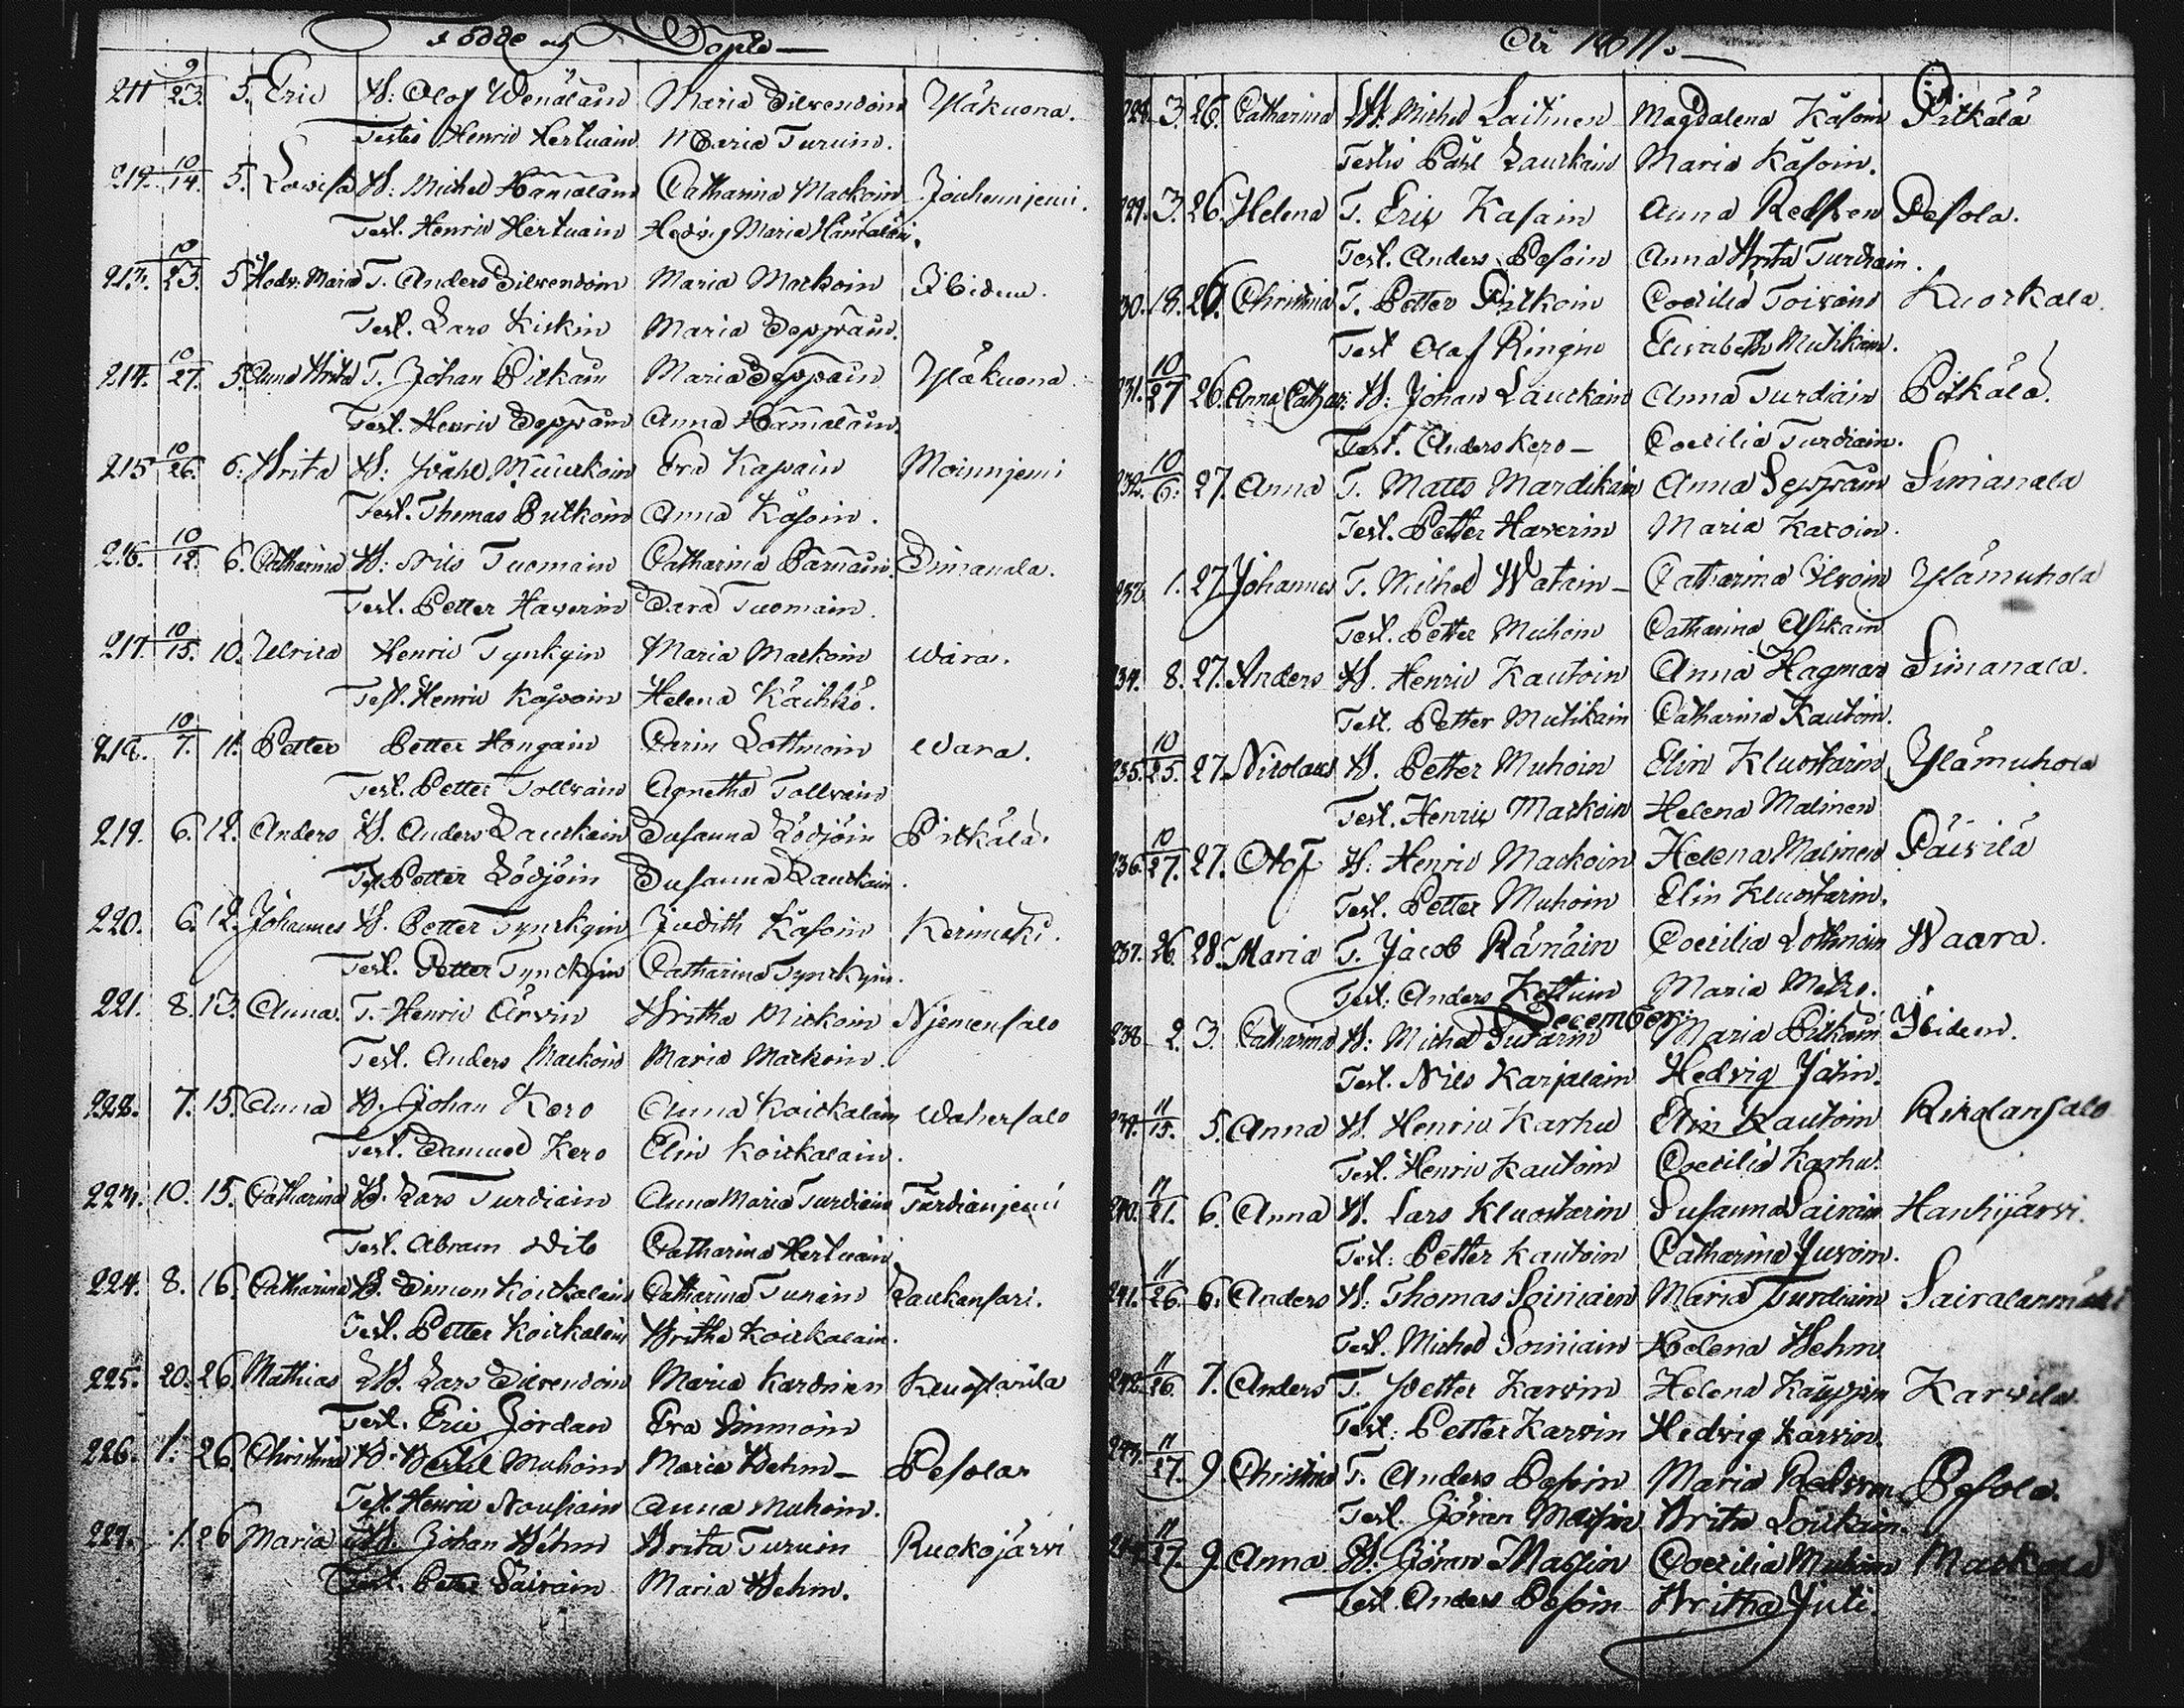 Födde och Döpte
211 9/23. 5. Eric B: Olof Wenäläin Maria Silvendoin Yläkuona.
Testes Henric Hertuain Maria Turuin.
212. 10/14. 5. Lovisa B: Michel Hämäläin Catharina Mackoin Jouhenniemi.
Test. Henric Hertuain Hedvig Maria Hämäläin.
213. 10/23. 5 Hedv: Maria T. Anders Silvendoin Maria Mackoin Ibidem.
Test. Lars Kiskin Maria Seppäin.
214. 10/27. 5. Anna Brita T. Johan Pitkäin Maria Seppäin Yläkuona.
Test. Henric Seppäin Anna Hämäläin.
215 10/26. 6. Brita B: Påhl Muukoin Eva Kapain Moinniemi
Test. Thomas Pulkoin Anna Käsoin.
216. 10/12. 6. Catharina B: Nils Tuomain Catharina Pämäin Simanala.
Test. Petter Haverin Sara Tuomain.
217. 10/15. 10. Ulrica Henric Tynkyin Maria Mackoin Wara.
Test. Henric Kapoin Helena Käihkö.
218. 10/7. 11. Petter Petter Hongain Carin Lottmoin Wara.
Test. Petter Tollvain Agnetha Tollvain
219. 6. 12. Anders B. Anders Lauckain Susanna Rödjöin Pitkälä.
Test. Petter Rödjöin Susanna Lauckain.
220. 6. 12. Johannes B. Petter Tynckyin Judith Käsoin Kerimäki.
Test. Petter Tynckyin Catharina Tynckyin.
221. 8. 13. Anna. T. Henric Ärvin Britha Mickoin Njemensalo
Test. Anders Mackoin Maria Mackoin.
222. 7. 15. Anna B. Johan Kero Anna Koickalain Wahersalo
Test. Samuel Kero Elin Koickalain.
223. 10. 15. Catharina B. Lars Turdiain Anna Maria Turdiain Turdianjemi
Test. Abram Dito Catharina Hertuain
224. 8. 16. Catharina B. Simon Koickalain Catharina Tunain Raukansari.
Test. Petter Koickalain Britha Koickalain.
225. 20. 26. Mathias B. Lars Silvendoin Maria Kardinen Kluustarila
Test. Eric Jordan Eva Simmoin
226. 1. 26. Christina B. Bertil Muhoin Maria Behm Pesola
Test. Henric Nousiain Anna Muhoin.
227. 1. 26 Maria B. Johan Behm Brita Turuin Ruokojärvi
Test. Petter Säivain Maria Behm.
År 1811.
228. 3. 26. Catharina B. Michel Laitinen Magdalena Käsoin Pitkälä
Testis Påhl Lauckain Maria Käsoin.
229. 3. 26. Helena T. Eric Kasain Anna Redsven Pesola.
Test. Anders Pesoin Anna Brita Turdiain.
230. 18. 26. Christina T. Petter Pitkoin Coecilia Toivain Kuorkala.
Test Olof Ringin Elisabeth Mutikain.
231. 10/27 26. Anna Cathar: B: Johan Lauckain Anna Turdiain Pitkälä.
Test. Anders Kero Coecilia Turdiain.
232. 10/6. 27. Anna T. Matts Mardikain Anna Seppäin Simanala
Test. Petter Haverin Maria Karoin.
233. 1. 27. Johannes T. Michel Watain Catharina Ilvoin Ylämuhola
Test. Petter Muhoin Catharina Asikain
234. 8. 27. Anders B. Henric Kautoin Anna Hagman Simanala.
Test. Petter Mutikain Catharina Kautoin.
235. 10/25. 27. Nicolaus B. Petter Muhoin Elin Kluustarin Ylämuhola
Test. Henric Mackoin Helena Malinen
236. 10/27. 27. Olof B: Henric Mackoin Helena Malinen Päivilä
Test. Petter Muhoin Elin Kluustarin.
237. 26. 28. Maria T. Jacob Rämäin Coecilia Lothmoin Waara.
Test: Anders Kettuin Maria
December.
238 2. 3. Catharina B: Michel Sutarin Maria Pitkäin Ibidem.
Test. Nils Karjalain Hedvig Jätin.
239. 11/15. 5. Anna B. Henric Karhu Elin Kautoin Rikalansalo
Test. Henric Kautoin Coecilia Karhu.
240. 11/21. 6. Anna B. Lars Kluustarin Susanna Sairain Hanhijärvi.
Test: Petter Kautoin Catharina Juvoin.
241. 11/26. 6. Anders B: Thomas Soiniain Maria Turdiain Sairalanmäki
Test. Michel Soiniain Helena Behm.
242. 11/26. 7. Anders T. Petter Karvin Helena Käyppin Karvila
Test: Petter Karvin Hedvig Karvin.
243. 11/27. 9. Christina T. Anders Pesoin Maria Redsven Pesola.
Test. Göran Massin Brita Loukain.
244. 11/27. 9. Anna B. Göran Massin Coecilia Muhoin Mackola
Test. Anders Pesoin Britha Juti.